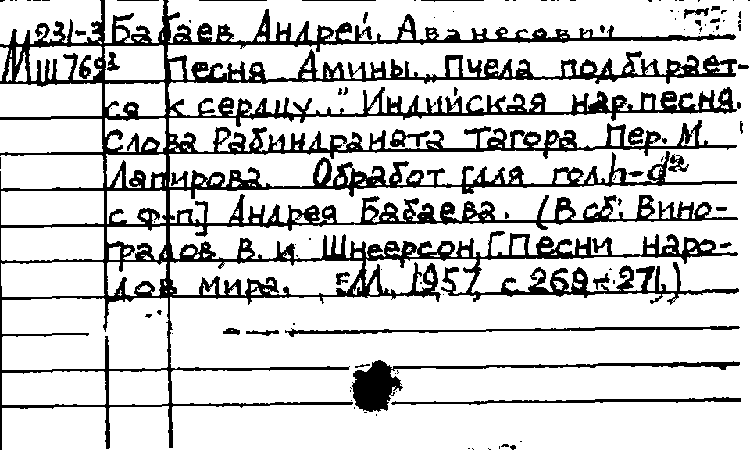 М 231-3 Бабаев, Андрей Аванесович
Ш 769² Песня Амины. „Пчела подбирает-
ся к сердцу..." Индийская нар. песня.
Слова Рабиндраната Тагора. Пер. М.
Лапирова. Обработ. [для гол. h-d²
с ф-п.] Андрея Бабаева. (В сб: Вино-
градов, В. и Шнеерсон, Г. Песни наро-
дов мира. М., 1957, с 269-271.)